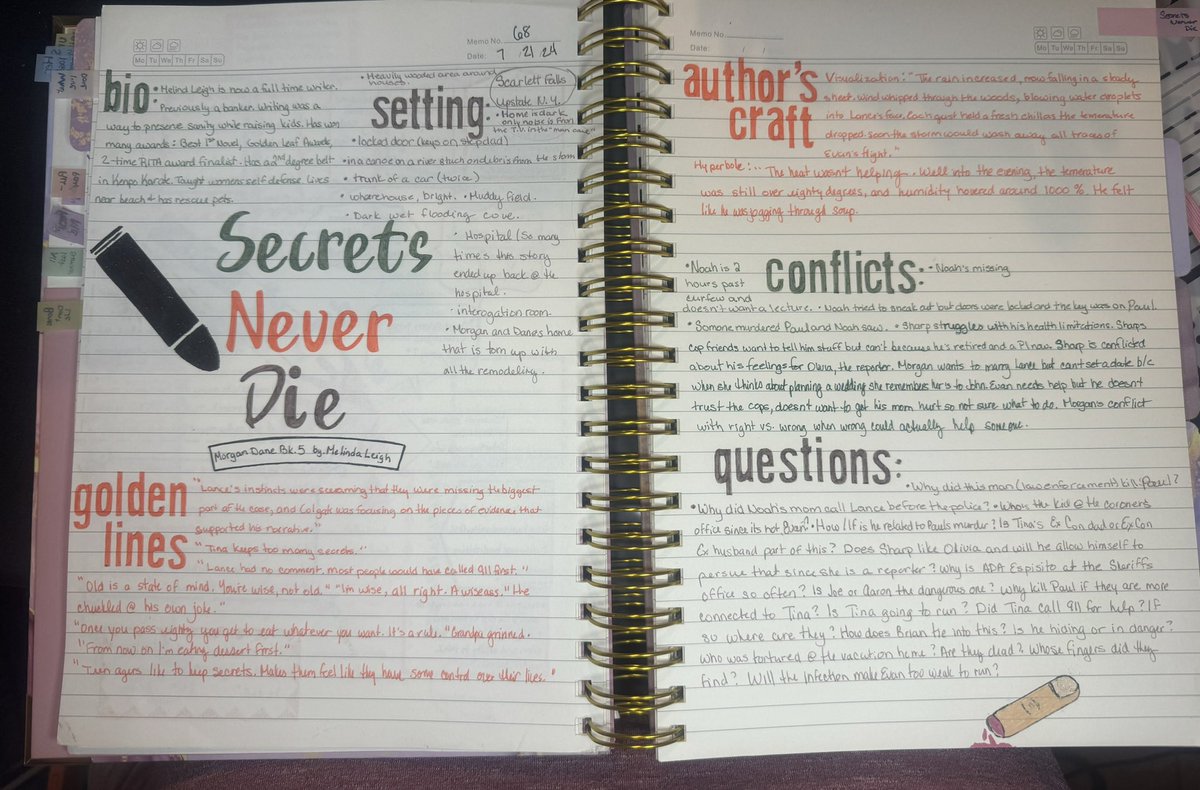 Memo No. 68
Mo Tu We Th Fr Sa Su
Date: 7 / 21 / 24
bio:
• Melinda Leigh is now a full time writer.
Previously a banker. Writing was a
way to preserve sanity while raising kids. Has won
many awards: Best 1st Novel, Golden Leaf Awards,
2-time RITA award finalist. Has a 2ND degree belt
in Kenpo Karate. Taught womens self defense lives
near beach & has rescue pets.
• Heavily wooded area around
houses
Scarlett Falls
setting:
Upstate N.Y.
• Home is dark
only noise is from
the T.V. in the "man cave"
• locked door (keys on stepdad)
• in a canoe on a river stuck on debris from the storm
• trunk of a car (twice)
• wharehouse, bright. • Muddy field.
• Dark wet flooding cove.
• Hospital (So many
times this story
ended up back @ the
hospital.
• interogation room.
• Morgan and Dane's home
that is torn up with
all the remodeling.
Secrets
Never
Die
Morgan Dane Bk. 5 by: Melinda Leigh
golden
lines
"Lance's instincts were screaming that they were missing the biggest
part of the case, and Colgate was focusing on the pieces of evidence that
supported his narrative."
"Tina keeps too many secrets."
"Lance had no comment. most people would have called 911 first."
"Old is a state of mind. You're wise, not old." "I'm wise, all right. A wiseass." He
chuckled @ his own joke."
"Once you pass eighty you get to eat whatever you want. It's a rule. "Grandpa grinned.
"From now on I'm eating dessert first."
"Teen agers like to keep secrets. Makes them feel like they have some control over their lives."
Memo No.
Date: / /
Mo Tu We Th Fr Sa Su
Secrets
Never
Die
author's
craft
Visualization: "The rain increased, now falling in a steady
sheet. Wind whipped through the woods, blowing water droplets
into Lance's face. Each gust held a fresh chill as the temerature
dropped. Soon the storm would wash away all traces of
Evan's flight."
Hyperbole: ... The heat wasn't helping. Well into the evening, the temerature
was still over eighty degrees, and humidity hovered around 1000 %. He felt
like he was jogging through soup.
conflicts:
• Noah is 2
hours past
curfew and
doesn't want a lecture.
• Noah's missing
• Noah tried to sneak out but doors were locked and the key was on Paul.
• Somone murdered Paul and Noah saw. • Sharp struggles with his health limitations. Sharps
cop friends want to tell him stuff but can't because he's retired and a PI now. Sharp is conflicted
about his feelings for Olivia, the reporter. Morgan wants to marry Lance but cant set a date b/c
when she thinks about planning a wedding she remembers hers to John. Evan needs help but he doesn't
trust the cops, doesn't want to get his mom hurt so not sure what to do. Morgan's conflict
with right vs. wrong when wrong could actually help someone.
questions:
• Why did this man (law enforcement) kill Paul?
• Why did Noah's mom call Lance before the police? • Who's the kid @ the coroners
office since its not Evan? • How / If is he related to Pauls murder? Is Tina's Ex Con dad or Ex Con
Ex husband part of this? Does Sharp like Olivia and will he allow himself to
persue that since she is a reporter? Why is ADA Espisito at the Sheriffs
office so often? Is Joe or Aaron the dangerous one? Why kill Paul if they are more
connected to Tina? Is Tina going to run? Did Tina call 911 for help? If
so where are they? How does Brian tie into this? Is he hiding or in danger?
Who was tortured @ the vacation home? Are they dead? Whose fingers did they
find? Will the infection make Evan too weak to run?